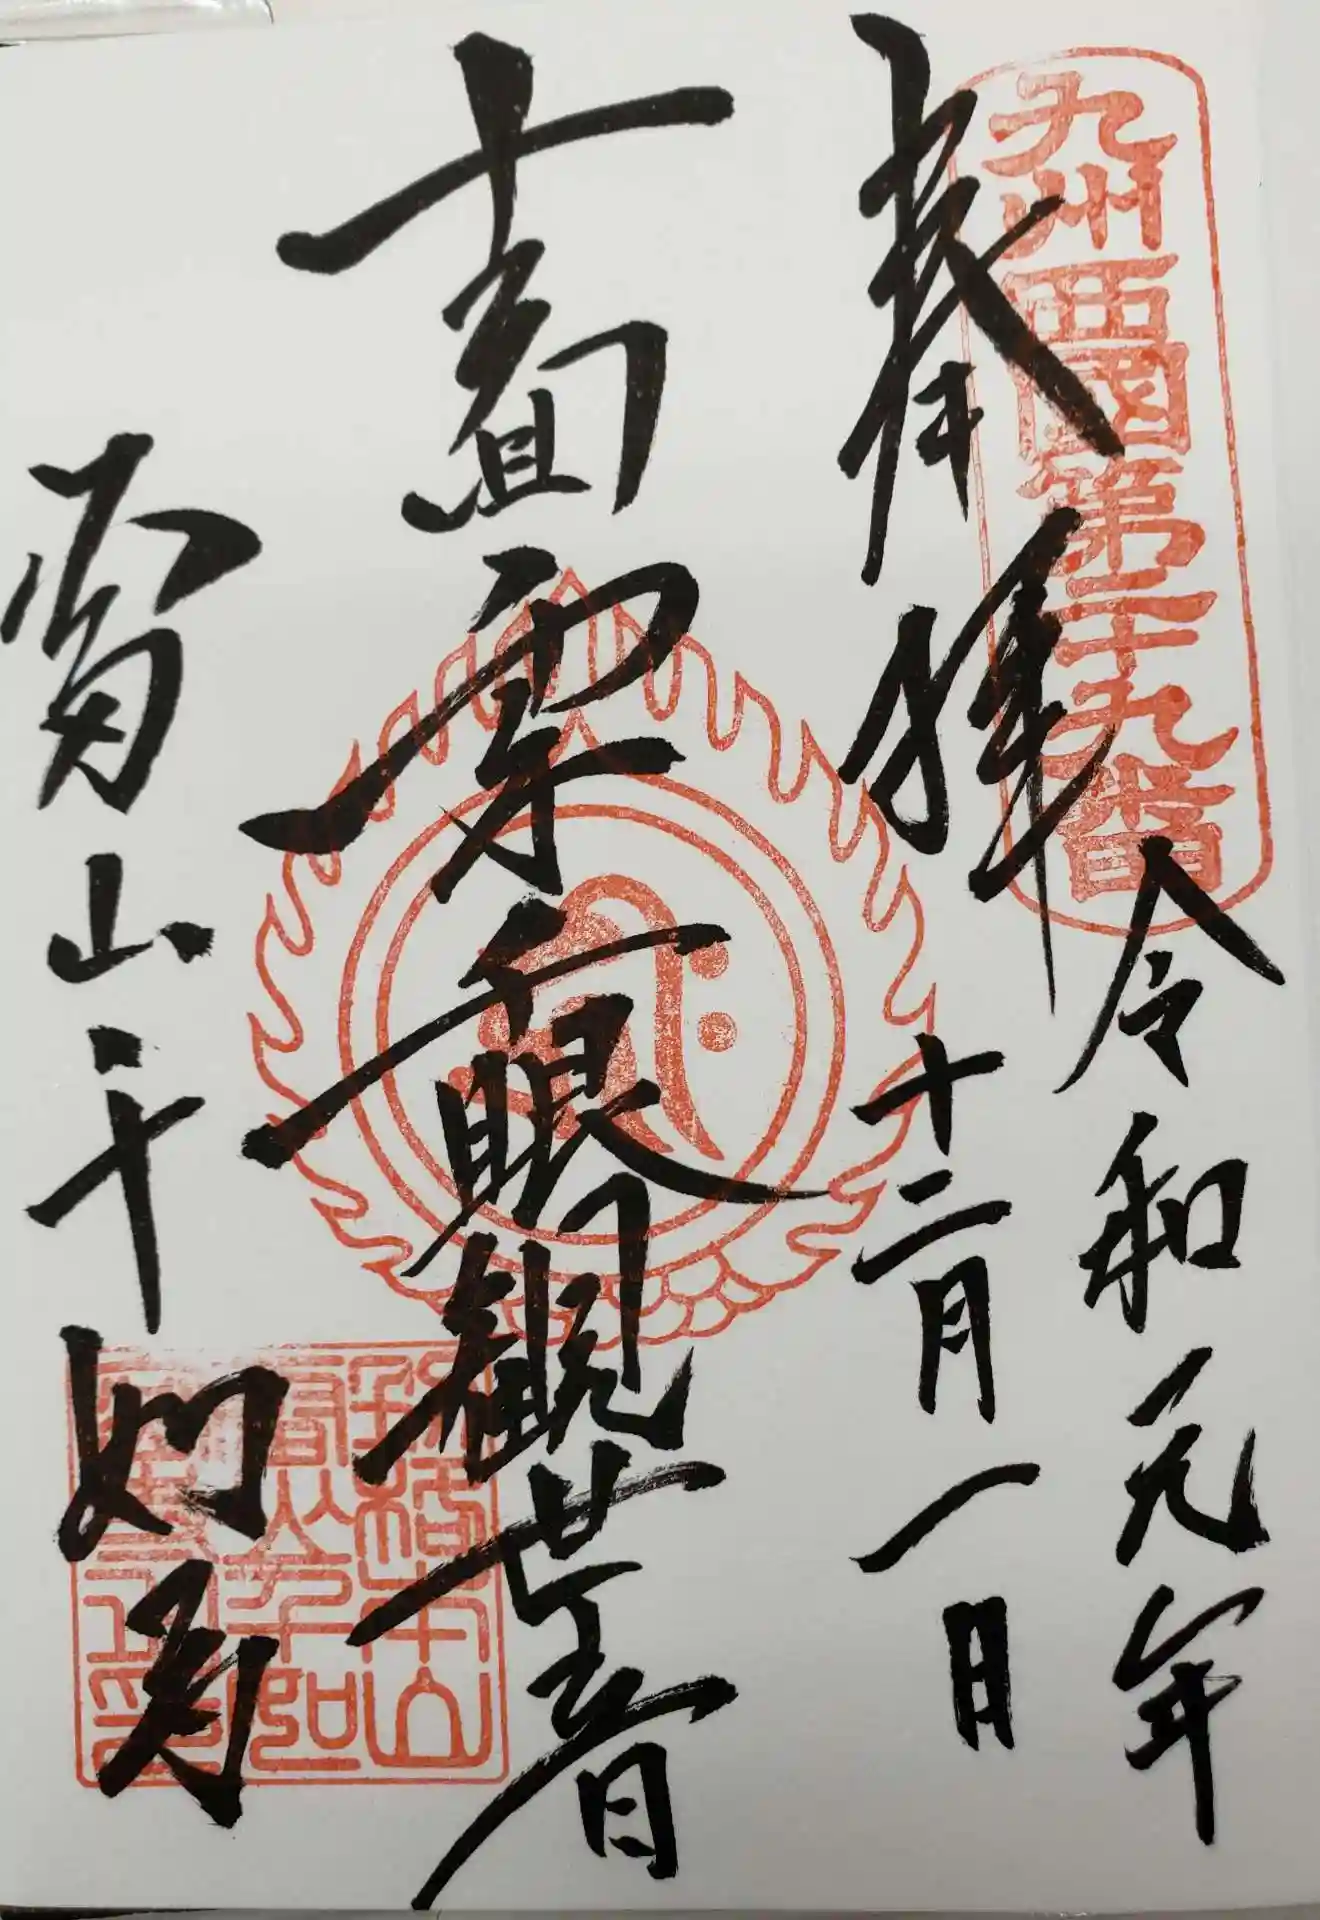 九州西國第二十九番
奉拝
令和元年
十二月一日
十一面千手千眼觀世音
雷山千如寺